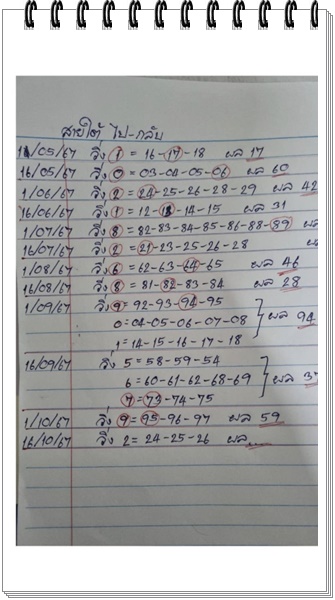 สายใต้ ไป-กลับ
1/05/67 วิ่ง 1 = 16-17-18 ผล 17
16/05/67 วิ่ง 0 = 03-04-05-06 ผล 60
1/06/67 วิ่ง 2 = 24-25-26-28-29 ผล 42
16/06/67 วิ่ง 1 = 12-13-14-15 ผล 31
1/07/67 วิ่ง 8 = 82-83-84-85-86-88-89 ผล
16/07/67 วิ่ง 2 = 21-23-25-26-28
1/08/67 วิ่ง 6 = 62-63-64-65 ผล 46
16/08/67 วิ่ง 8 = 81-82-83-84 ผล 28
1/09/67 วิ่ง 9 = 92-93-94-95
0 = 04-05-06-07-08 ผล 94
1 = 14-15-16-17-18
16/09/67 วิ่ง 5 = 58-59-54
6 = 60-61-62-68-69 ผล 37
7 = 73-74-75
1/10/67 วิ่ง 9 = 95-96-97 ผล 59
16/10/67 วิ่ง 2 = 24-25-26 ผล....